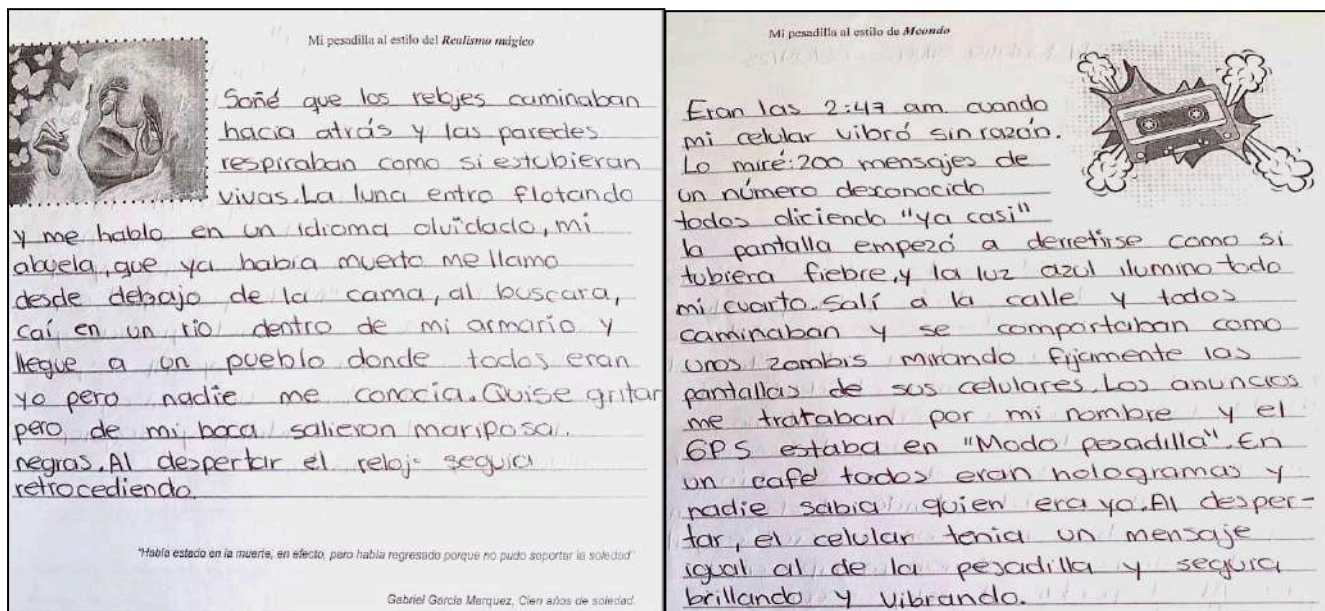 Mi pesadilla al estilo del Realismo mágico
Soñé que los relojes caminaban
hacia atrás y las paredes
respiraban como si estubieran
vivas. La luna entro flotando
y me hablo en un idioma olvidado, mi
abuela, que ya había muerto me llamo
desde debajo de la cama, al buscara,
caí en un rio dentro de mi armario y
llegue a un pueblo donde todos eran
yo pero nadie me conocia. Quise gritar
pero de mi boca salieron mariposa.
negras. Al despertar el reloj seguia
retrocediendo.
"Había estado en la muerte, en efecto, pero había regresado porque no pudo soportar la soledad"
Gabriel García Marquez, Cien años de soledad.
Mi pesadilla al estilo de Mcondo
Eran las 2:47 am cuando
mi celular vibró sin razón.
Lo miré: 200 mensajes de
un número desconocido
todos diciendo "ya casi"
la pantalla empezó a derretirse como si
tubiera fiebre, y la luz azul ilumino todo
mi cuarto. Salí a la calle y todos
caminaban y se comportaban como
unos zombis mirando fijamente las
pantallas de sus celulares. Los anuncios
me trataban por mi nombre y el
GPS estaba en "Modo pesadilla". En
un café todos eran hologramas y
nadie sabia quien era yo. Al desper-
tar, el celular tenia un mensaje
igual al de la pesadilla y seguia
brillando y vibrando.